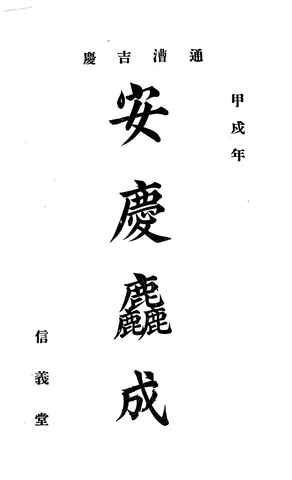 通漕吉慶
甲戌年
安慶麤成
信義堂